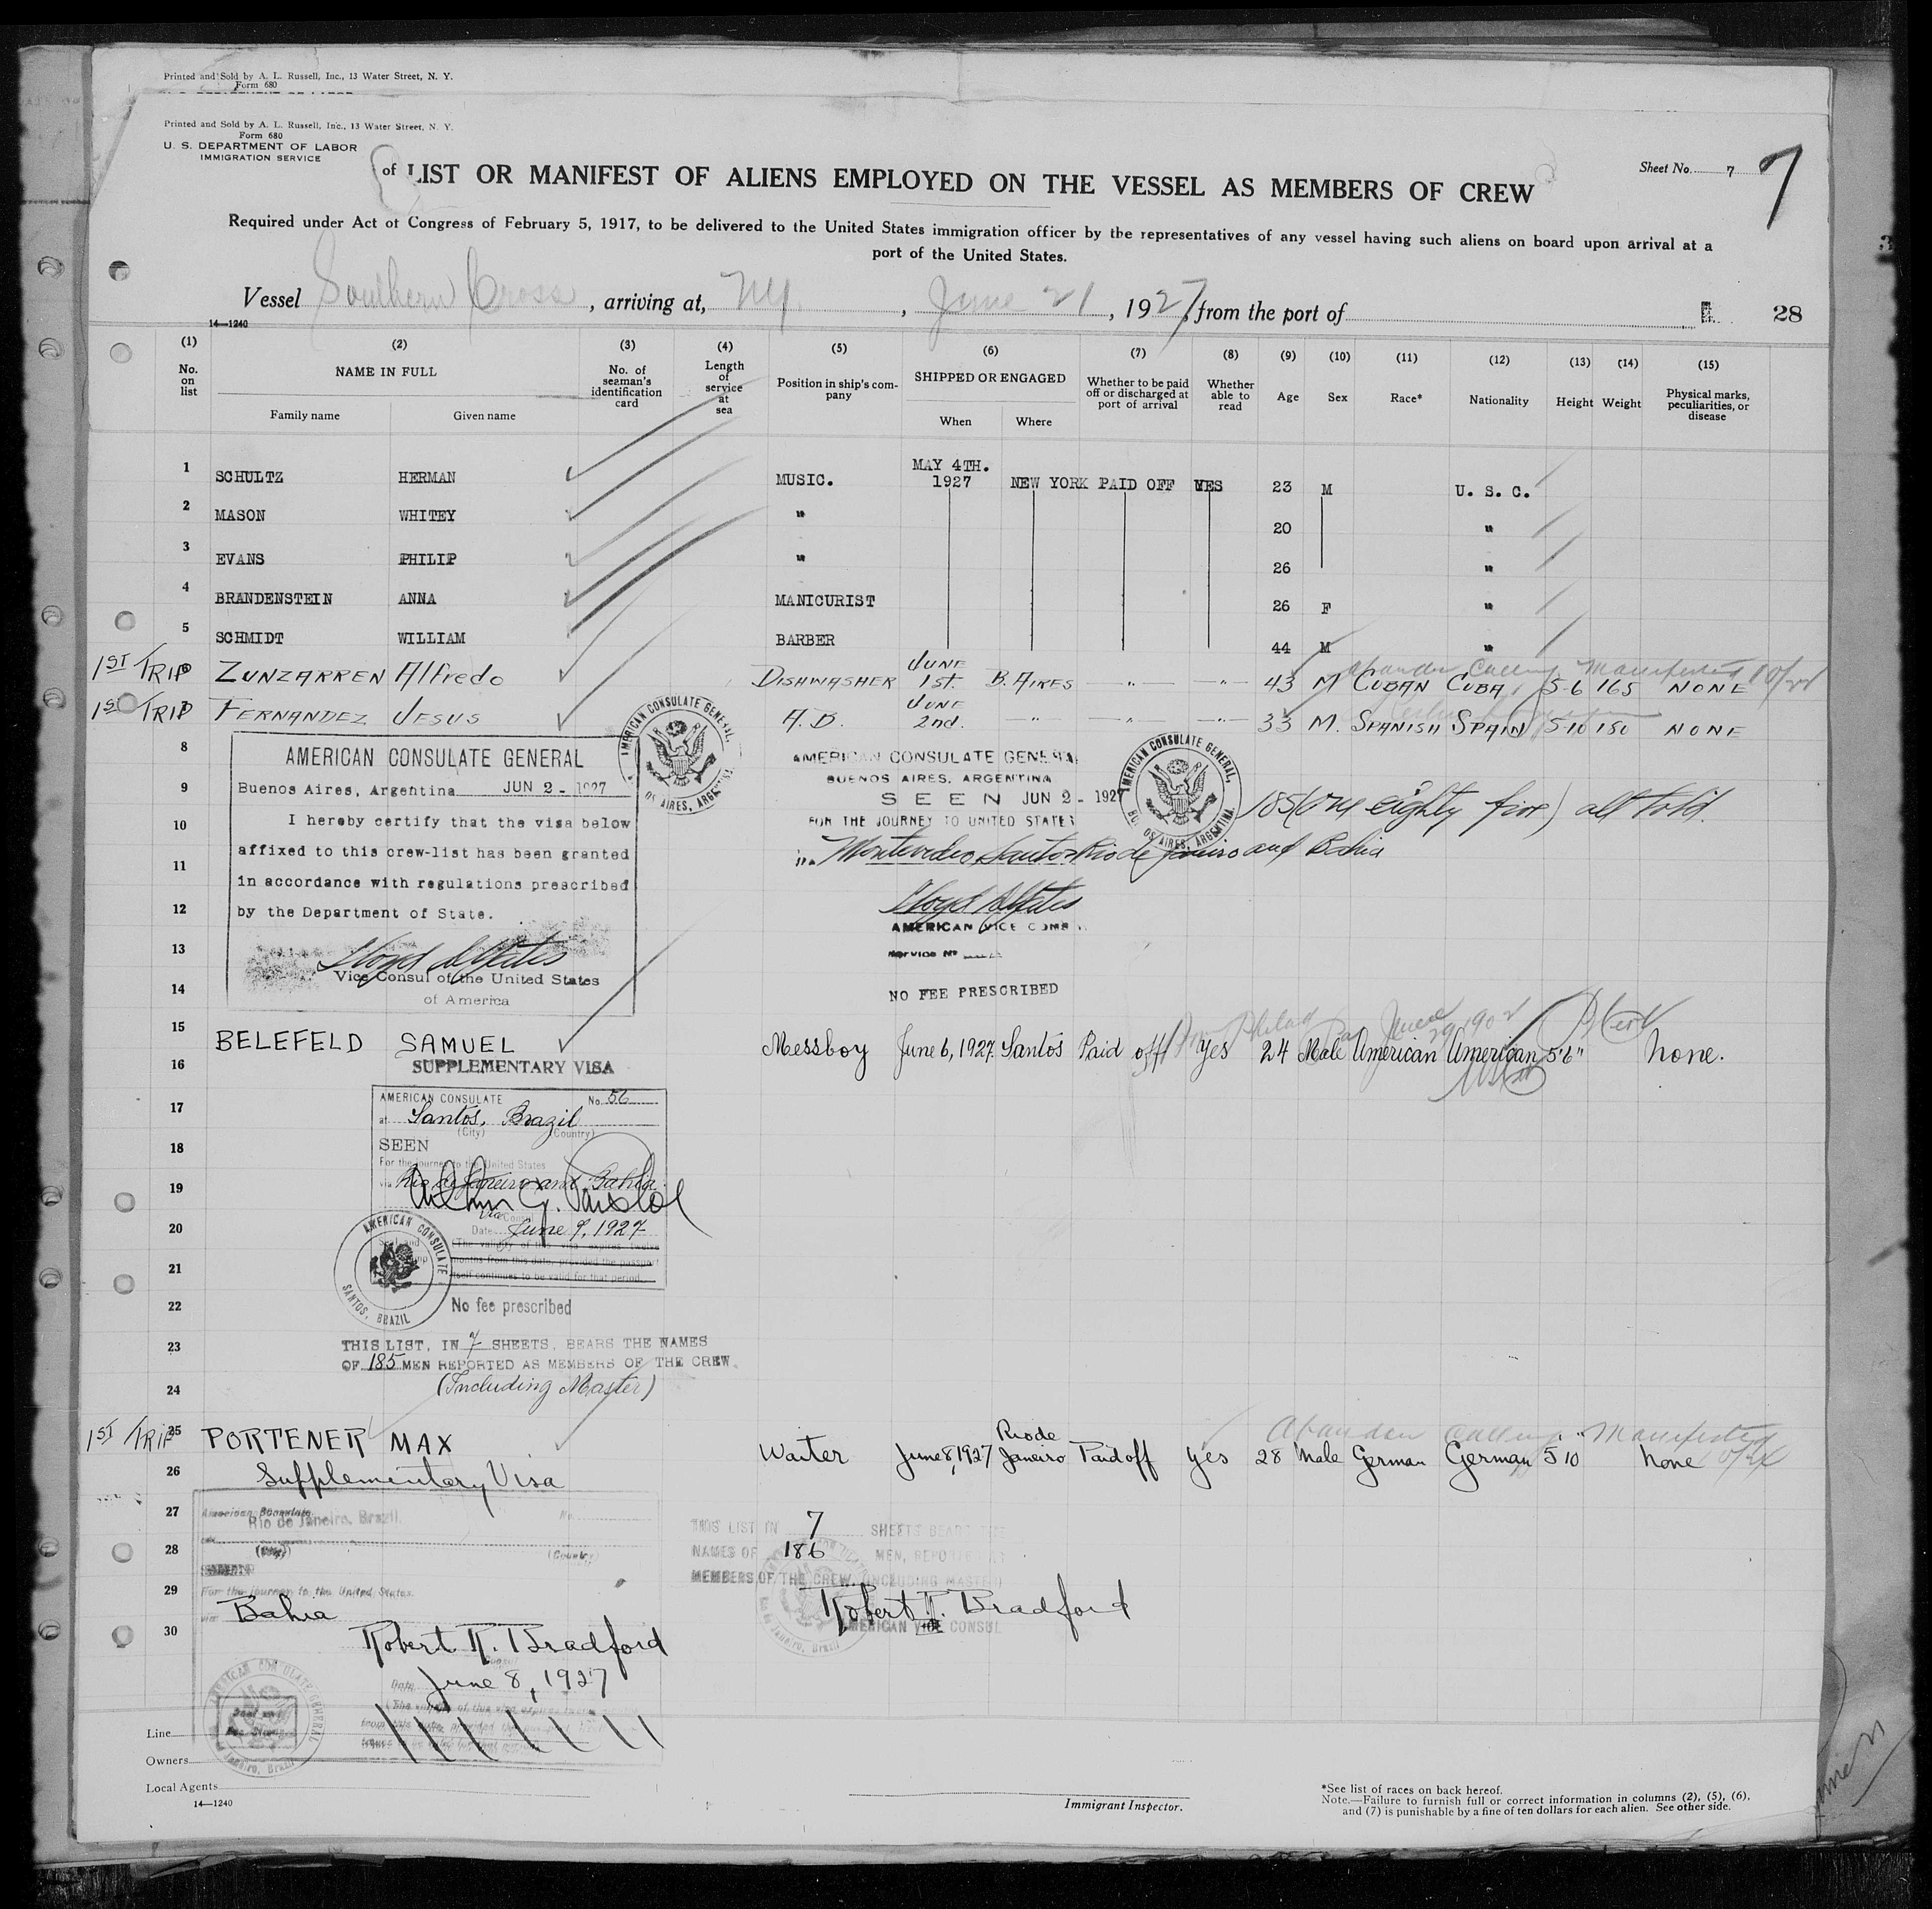 Printed and Sold by A. L. Russell, Inc., 13 Water Street, N. Y.
Form 680
U. S. DEPARTMENT OF LABOR
Printed and Sold by A. L. Russell, Inc., 13 Water Street, N. Y.
Form 680
U. S. DEPARTMENT OF LABOR
IMMIGRATION SERVICE
Sheet No. 7 7
of LIST OR MANIFEST OF ALIENS EMPLOYED ON THE VESSEL AS MEMBERS OF CREW
Required under Act of Congress of February 5, 1917, to be delivered to the United States immigration officer by the representatives of any vessel having such aliens on board upon arrival at a
port of the United States.
Vessel Southern Cross, arriving at, NY., June 21, 1927, from the port of 28
14—1240
(1) (2) (3) (4) (5) (6) (7) (8) (9) (10) (11) (12) (13) (14) (15)
No. on list NAME IN FULL No. of seaman's identification card Length of service at sea Position in ship's company SHIPPED OR ENGAGED Whether to be paid off or discharged at port of arrival Whether able to read Age Sex Race* Nationality Height Weight Physical marks, peculiarities, or disease
Family name Given name When Where
1 SCHULTZ HERMAN MUSIC. MAY 4TH. 1927 NEW YORK PAID OFF YES 23 M U. S. C.
2 MASON WHITEY " 20 "
3 EVANS PHILIP " 26 "
4 BRANDENSTEIN ANNA MANICURIST 26 F "
5 SCHMIDT WILLIAM BARBER 44 M "
Abandon Calling Manifested
1ST TRIP 6 ZUNZARREN Alfredo DISHWASHER JUNE 1st. B. AIRES —"— —"— 43 M CUBAN CUBA 5-6 165 NONE
1ST TRIP 7 FERNANDEZ JESUS A.B. JUNE 2nd. —"— —"— —"— 33 M. SPANISH SPAIN 5-10 150 NONE
8
9
10
11
12
13
14
AMERICAN CONSULATE GENERAL
Buenos Aires, Argentina JUN 2 - 1927
I hereby certify that the visa below
affixed to this crew-list has been granted
in accordance with regulations prescribed
by the Department of State.
Vice Consul of the United States
of America
AMERICAN CONSULATE GENERAL, BUENOS AIRES, ARGENTINA
AMERICAN CONSULATE GENERAL
BUENOS AIRES, ARGENTINA
SEEN JUN 2 - 1927
FOR THE JOURNEY TO UNITED STATES
via Montevideo, Santos Rio de Janeiro and Bahia
AMERICAN CONSULATE GENERAL, BUENOS AIRES, ARGENTINA
185 (one eighty five) all told.
AMERICAN VICE CONSUL
Service No
NO FEE PRESCRIBED
15 BELEFELD SAMUEL Messboy June 6, 1927. Santos Paid off Yes 24 Male American American 5'6" None.
June 29 1902
16 SUPPLEMENTARY VISA
17
18
19
20
21
22
AMERICAN CONSULATE No. 56
at Santos, Brazil
(City) (Country)
SEEN
For the journey to the United States
via Rio de Janeiro and Bahia.
Vice Consul
Date June 9, 1927
(The validity of this visa expires twelve
months from this date, provided the passport
itself continues to be valid for that period.
AMERICAN CONSULATE SANTOS, BRAZIL
No fee prescribed
23 THIS LIST, IN 7 SHEETS, BEARS THE NAMES
OF 185 MEN REPORTED AS MEMBERS OF THE CREW.
24 (Including Master)
Abandon Calling Manifested
1ST TRIP 25 PORTENER MAX Waiter June 8, 1927 Rio de Janeiro Paid off yes 28 Male German German 5 10 None
26 Supplementary Visa
27
28
29
30
American Consulate No.
Rio de Janeiro, Brazil.
(City) (Country)
For the journey to the United States.
via Bahia
Robert R. Bradford
Date June 8, 1927
THIS LIST IN 7 SHEETS BEARS THE
NAMES OF 186 MEN, REPORTED AS
MEMBERS OF THE CREW. (INCLUDING MASTER)
Robert R. Bradford
AMERICAN VICE CONSUL
AMERICAN CONSULATE GENERAL Rio de Janeiro, Brazil
Line
Owners
Local Agents
14—1240
Immigrant Inspector.
*See list of races on back hereof.
Note.—Failure to furnish full or correct information in columns (2), (5), (6),
and (7) is punishable by a fine of ten dollars for each alien. See other side.